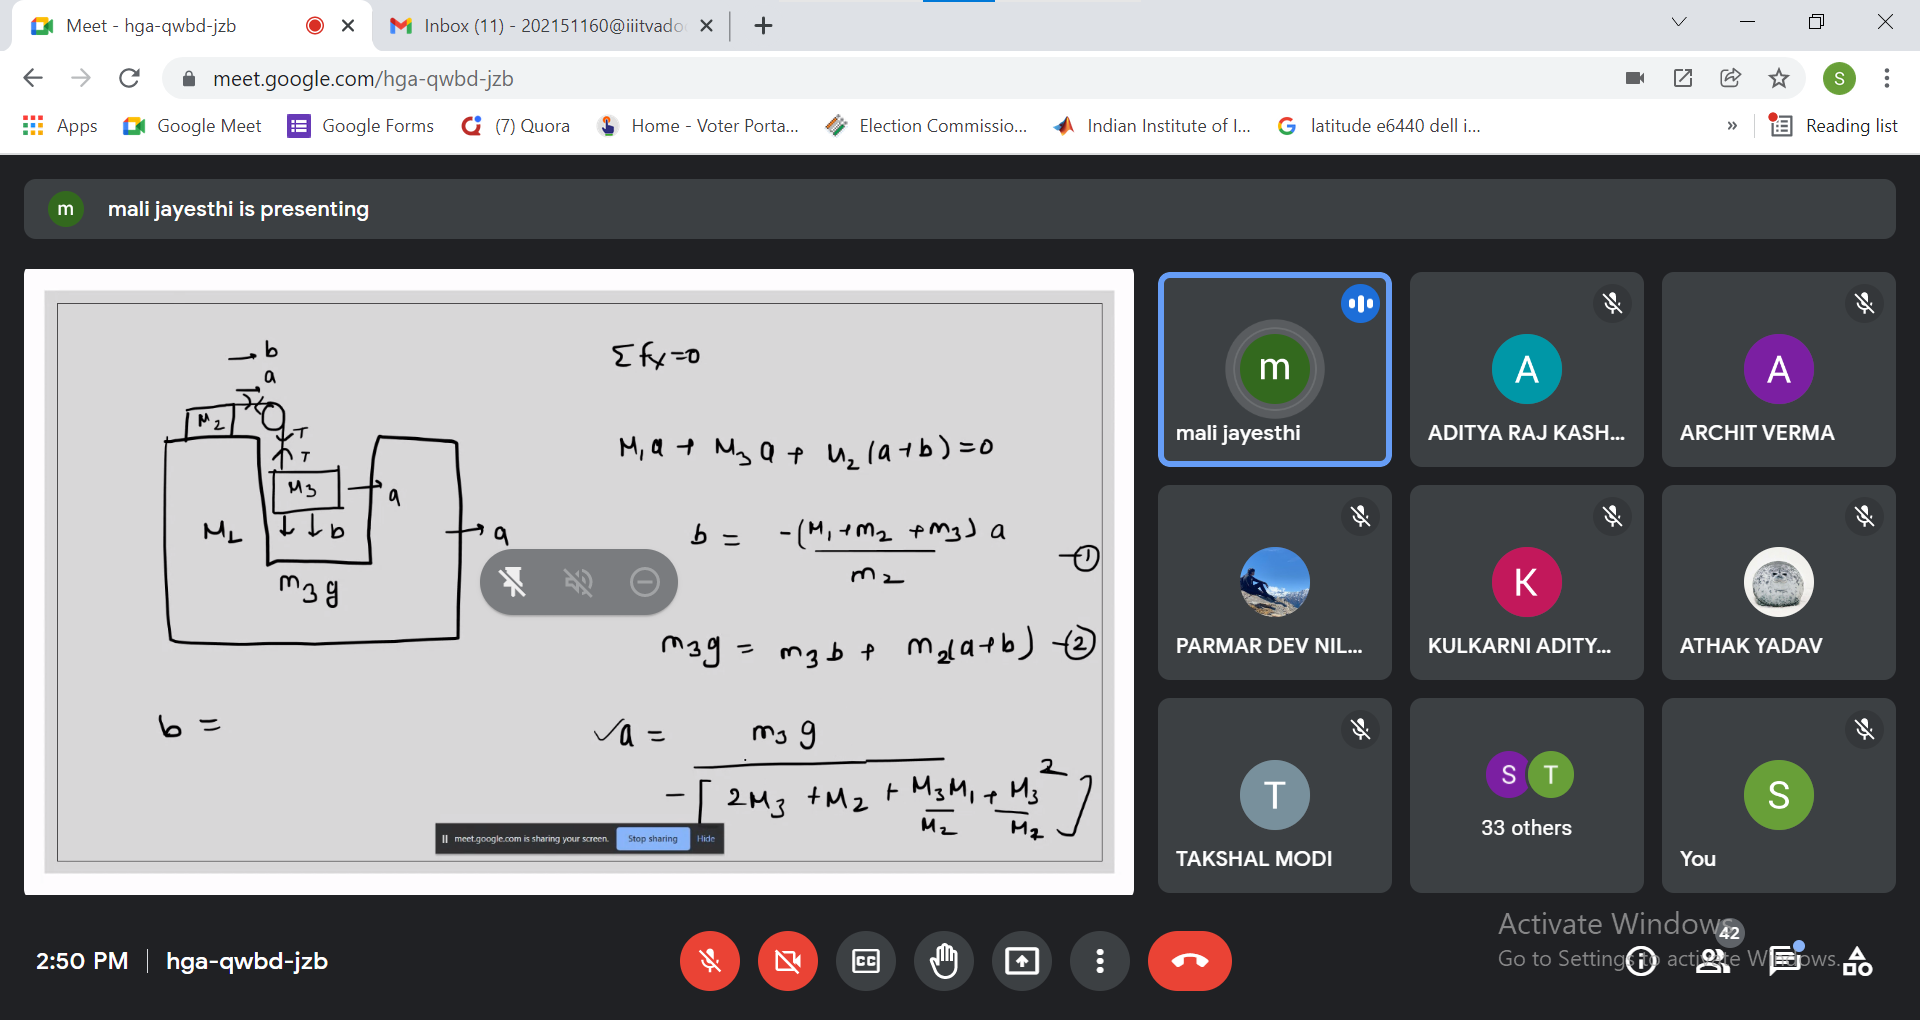 Meet - hga-qwbd-jzb
Inbox (11) - 202151160@iiitvado
meet.google.com/hga-qwbd-jzb
S
Apps
Google Meet
Google Forms
(7) Quora
Home - Voter Porta...
Election Commissio...
Indian Institute of I...
latitude e6440 dell i...
»
Reading list
m
mali jayesthi is presenting
→ b
→ a
M2
T
T
M3
→ a
b
M1
→ a
m3 g
b =
Σ fx = 0
M1 a + M3 a + M2 (a+b) = 0
b = -(M1 + m2 + m3) a / m2 — ①
m3g = m3 b + m2(a+b) — ②
✓a = m3 g / -[2M3 + M2 + M3M1/M2 + M3²/M2]
meet.google.com is sharing your screen.
Stop sharing
Hide
m
mali jayesthi
A
ADITYA RAJ KASH...
A
ARCHIT VERMA
PARMAR DEV NIL...
K
KULKARNI ADITY...
ATHAK YADAV
T
TAKSHAL MODI
S
T
33 others
S
You
2:50 PM
hga-qwbd-jzb
CC
Activate Windows
Go to Settings to activate Windows.
42